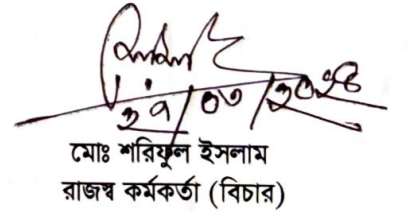 ২৭/০৩/২০২৪
মোঃ শরিফুল ইসলাম
রাজস্ব কর্মকর্তা (বিচার)